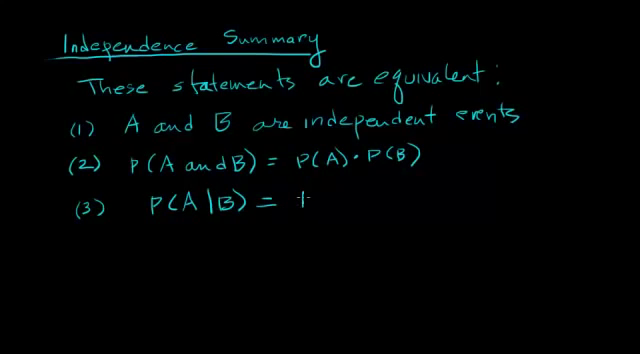 Independence Summary
These statements are equivalent:
(1) A and B are independent events
(2) P(A and B) = P(A) · P(B)
(3) P(A|B) =